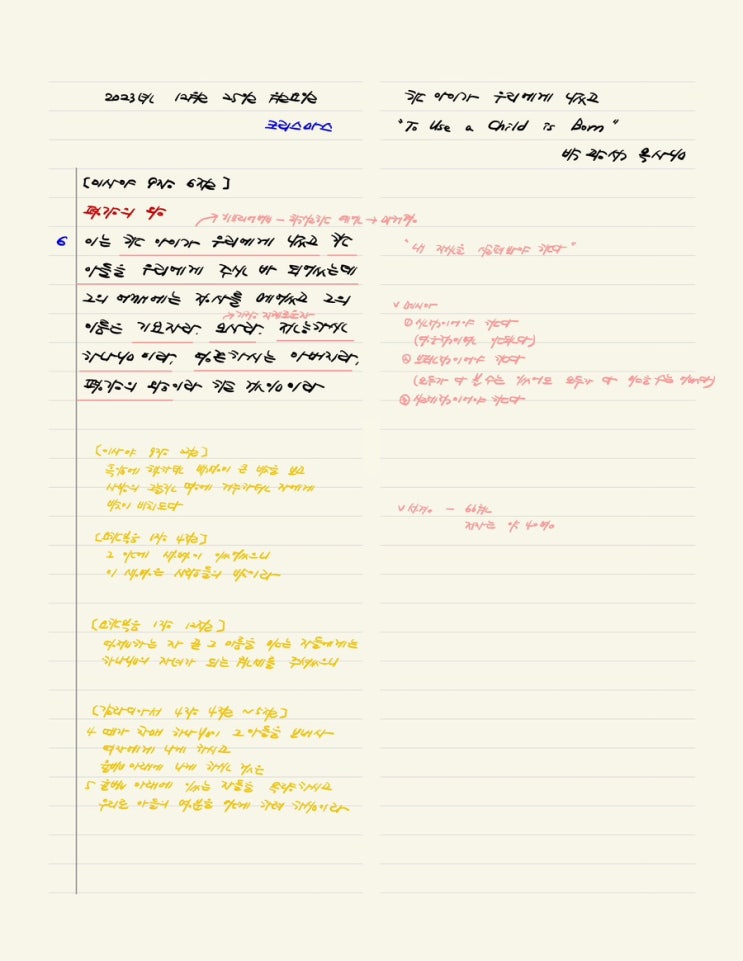 2023년 12월 25일 월요일
크리스마스
[이사야 9장 6절]
평강의 왕
6 이는 한 아이가 우리에게 났고 한
아들을 우리에게 주신 바 되었는데
그의 어깨에는 정사를 메었고 그의
이름은 기묘자라, 모사라, 전능하신
하나님이라, 영존하시는 아버지라,
평강의 왕이라 할 것임이라
[이사야 9장 2절]
흑암에 행하던 백성이 큰 빛을 보고
사망의 그늘진 땅에 거주하던 자에게
빛이 비치도다
[요한복음 1장 4절]
그 안에 생명이 있었으니
이 생명은 사람들의 빛이라
[요한복음 1장 12절]
영접하는 자 곧 그 이름을 믿는 자들에게는
하나님의 자녀가 되는 권세를 주셨으니
[갈라디아서 4장 4절 ~ 5절]
4 때가 차매 하나님이 그 아들을 보내사
여자에게 나게 하시고
율법 아래에 나게 하신 것은
5 율법 아래에 있는 자들을 속량하시고
우리로 아들의 명분을 얻게 하려 하심이라
한 아이가 우리에게 났고
"To Use a Child is Born"
목사님
메시아
① 이어야 한다
② 이어야 한다
③ 이어야 한다
- 66권
저자는 약 40명